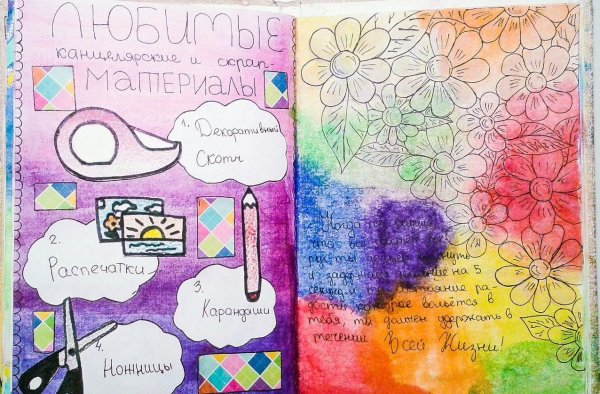 ЛЮБИМЫЕ
канцелярские и скрап-
МАТЕРИАЛЫ
1. Декоративный
Скотч
2.
Распечатки
3.
Карандаши
4.
Ножницы
Когда ты
что всё
ты должен
и задержать дыхание на 5
секунд. И состояние ра-
дости, которое вольётся в
тебя, ты должен удержать в
течении Всей Жизни!